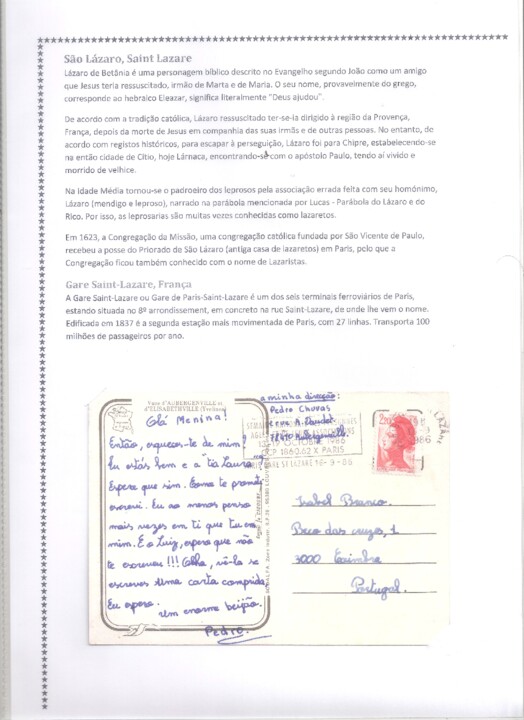 São Lázaro, Saint Lazare
Lázaro de Betânia é uma personagem bíblico descrito no Evangelho segundo João como um amigo
que Jesus teria ressuscitado, irmão de Marta e de Maria. O seu nome, provavelmente do grego,
corresponde ao hebraico Eleazar, significa literalmente "Deus ajudou".
De acordo com a tradição católica, Lázaro ressuscitado ter-se-ia dirigido à região da Provença,
França, depois da morte de Jesus em companhia das suas irmãs e de outras pessoas. No entanto, de
acordo com registos históricos, para escapar à perseguição, Lázaro foi para Chipre, estabelecendo-se
na então cidade de Cítio, hoje Lárnaca, encontrando-se com o apóstolo Paulo, tendo aí vivido e
morrido de velhice.
Na Idade Média tornou-se o padroeiro dos leprosos pela associação errada feita com seu homónimo,
Lázaro (mendigo e leproso), narrado na parábola mencionada por Lucas - Parábola do Lázaro e do
Rico. Por isso, as leprosarias são muitas vezes conhecidas como lazaretos.
Em 1623, a Congregação da Missão, uma congregação católica fundada por São Vicente de Paulo,
recebeu a posse do Priorado de São Lázaro (antiga casa de lazaretos) em Paris, pelo que a
Congregação ficou também conhecido com o nome de Lazaristas.
Gare Saint-Lazare, França
A Gare Saint-Lazare ou Gare de Paris-Saint-Lazare é um dos seis terminais ferroviários de Paris,
estando situada no 8º arrondissement, em concreto na rue Saint-Lazare, de onde lhe vem o nome.
Edificada em 1837 é a segunda estação mais movimentada de Paris, com 27 linhas. Transporta 100
milhões de passageiros por ano.
Vues d'AUBERGENVILLE et
d'ELISABETHVILLE (Yvelines)
Olá Menina!
Então, esqueces-te de mim?
Tu estás bem e a tia Laura
Espero que sim. Como te prometi
escrevi. Eu ao menos penso
mais vezes em ti que tu em
mim. E o Luiz, espero que não
te escreveu!!! Olha, vê-la se
escreves uma carta comprida,
Eu espero.
Um enorme beijão.
Pedro.
a minha direcção:
Pedro Chuvas
A. Daudet
78410
OCTOBRE 1986
PARIS
ST LAZARE
2,20
LAZARE
986
Isabel Branco.
Beco das cruzes, 1
3000 Coimbra
Portugal.